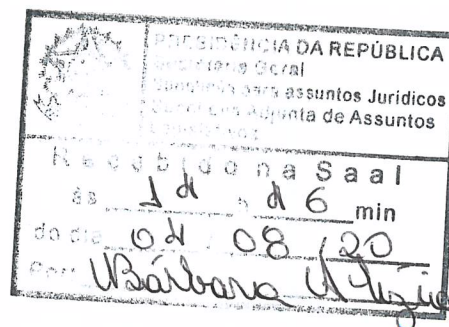 PRESIDÊNCIA DA REPÚBLICA
Secretaria Geral
para assuntos Jurídicos
Adjunta de Assuntos
Recebido na Saal
às h 16 min
do dia 04 / 08 / 20
Por: Bárbara